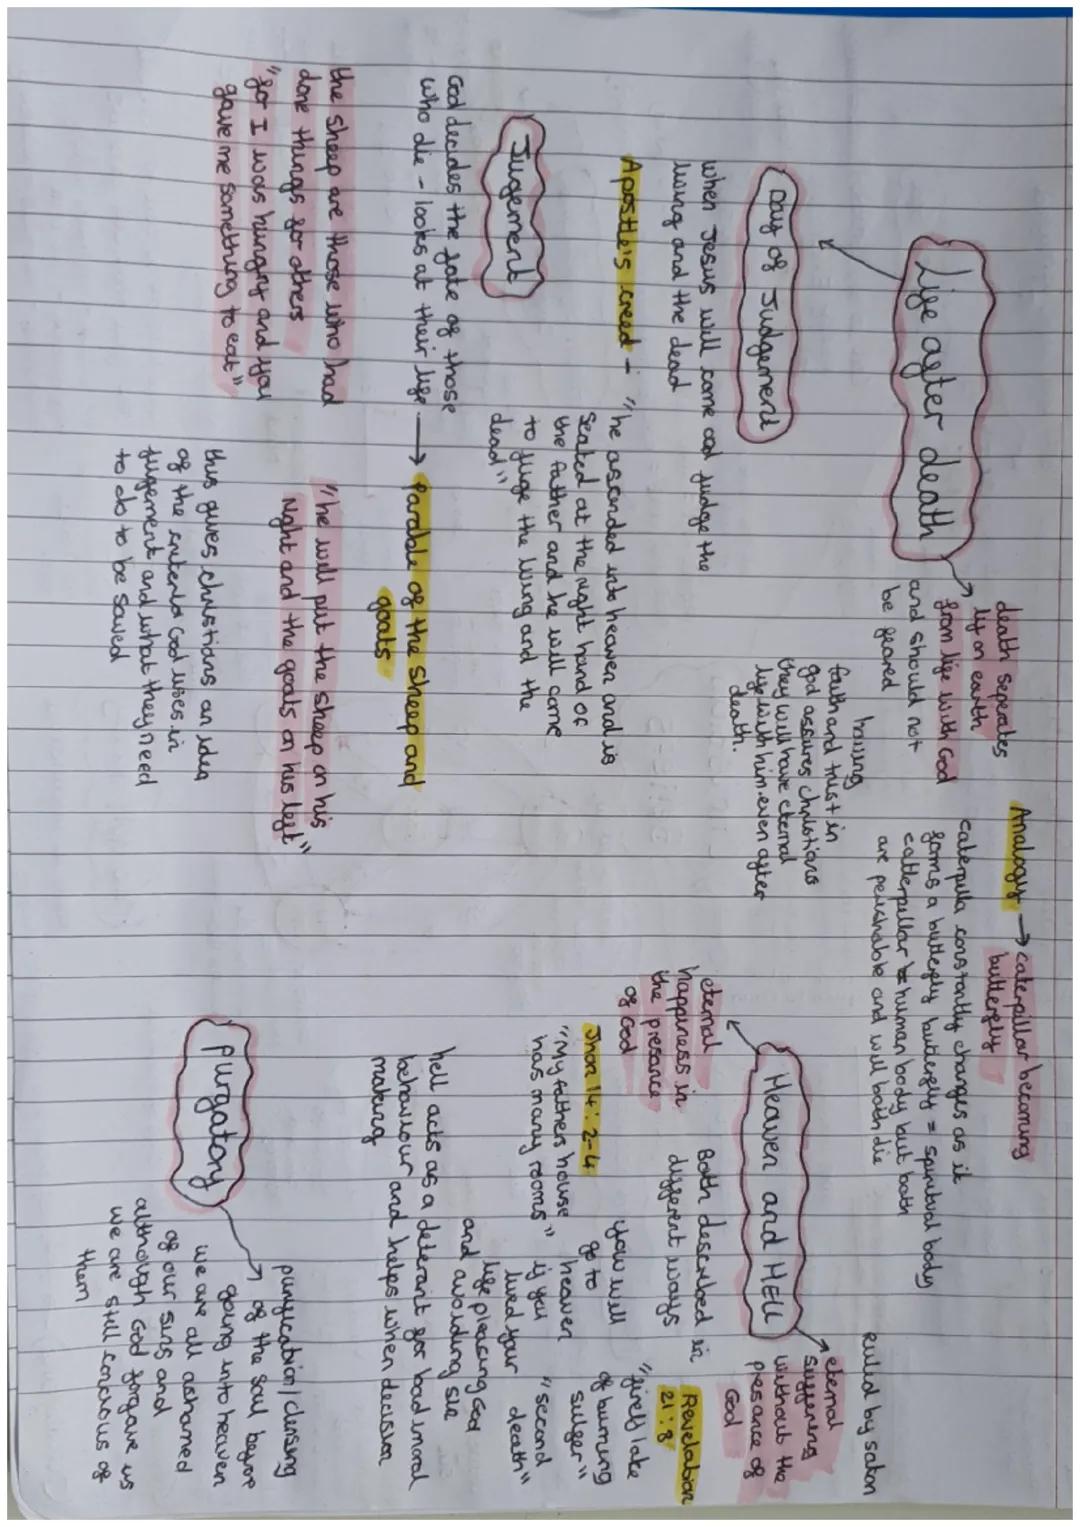 Life after death
death seperates
ly on earth
from life with God
and should not
be feared
having
faith and trust in
god assures christians
they will have eternal
life with him even after
death.
Analogy → caterpillar becoming
butterfly
caterpilla constantly changes as it
forms a butterfly butterfly = spiritual body
catterpillar = human body but both
are perishable and will both die
Day of Judgement
when Jesus will come and judge the
living and the dead
Apostle's creed - "he ascended into heaven and is
Seated at the right hand of
the father and he will come
to juge the living and the
dead"
Jugement
God decides the fate of those
who die - looks at their life → Parable of the sheep and
goats
the sheep are those who had
done things for others
"for I was hungry and you
gave me something to eat"
"he will put the sheep on his
right and the goats on his left"
this gives christians an idea
of the criteria God uses in
jugement and what they need
to do to be saved
Heaven and HEll
eternal
happiness in
the presance
of God
Both described in
different ways
ruled by satan
eternal
suffering
without the
presance of
God
Jhon 14:2-4
"My fathers house
has many rooms"
you will
go to
heaven
if you
lived your
life pleasing God
and avoiding sin
Revelation
21:8
"firely lake
of burning
sulfer"
"second
death"
hell acts as a deterant for bad moral
behaviour and helps when decision
making
purgatory
purification/clensing
of the soul before
going into heaven
we are all ashamed
of our sins and
although God forgave us
we are still concious of
them